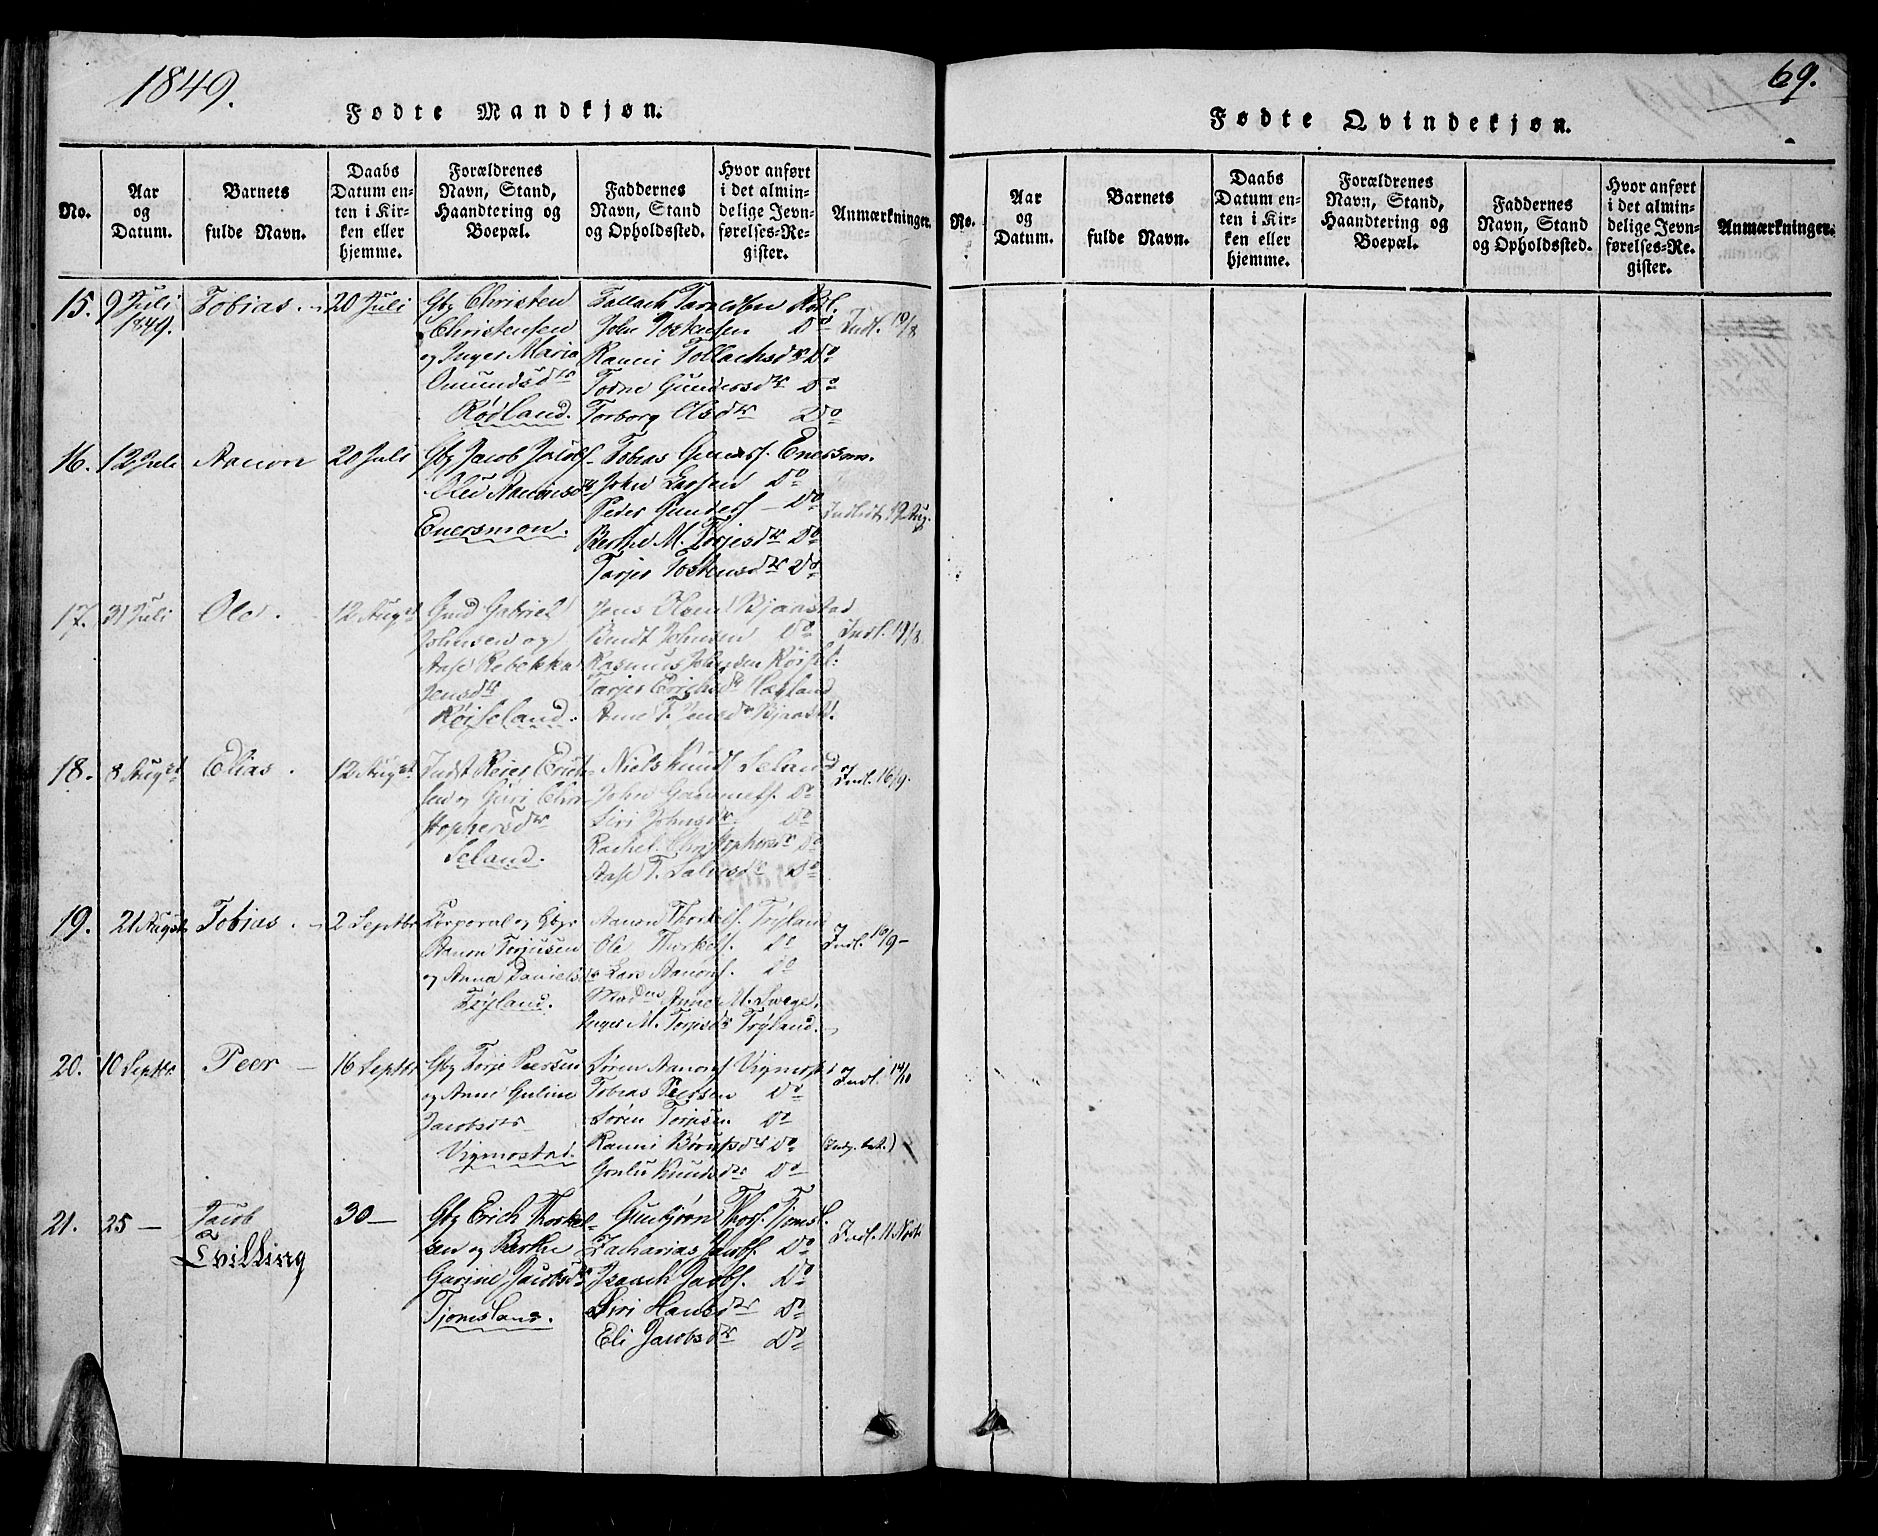 1849.
Fødte Mandkjøn.
No.
Aar og Datum.
Barnets fulde Navn.
Daabs Datum enten i Kirken eller hjemme.
Forældrenes Navn, Stand, Haandtering og Boepæl.
Faddernes Navn, Stand og Opholdssted.
Hvor anført i det almindelige Jevnførelses-Register.
Anmærkninger.
15. 9 Juli 1849. Tobias. 20 Juli
Gbr Christen
Christensen
og Inger Maria
Omundsdtr
Rødland.
John Tostensen Do
Ranni Tollachsdtr Do
Todne Gundersdtr Do
Torborg Olsdtr Do
Indl. 19/8
16. 12 Juli Aanon 20 Juli
Gbr Jacob Jacobs.
Enersmon.
Tobias Gunders. Enersmon.
John Larsen Do
Peder Gunders. Do
Berthe M. Torjesdtr Do
Tarjer Tostensdtr Do
Indledt 19 Aug.
17. 31 Juli Ole. 12 Augst
Gmd Gabriel
Johnsen og
Aase Rebekka
Jensdtr
Røiseland.
Jens Olsen Bjaastad
Bendt Johnsen Do
Rasmus Johnsen Røisel.
Tarjer Erichsdtr
Ane T. Jensdtr Bjaast.
Indl. 19/8
18. 8 Augst Elias. 12 Augst
Indst Reier Erich-
sen og Guri Chri-
stophersdtr
Seland.
Niels Knuds. Seland
John Do
Siri Johnsdtr Do
Rachel Christophersdtr Do
Aase T. Salvesdtr Do
Indl. 16/9.
19. 21 Augst Tobias. 2 Septbr
Corporal og Gbr
Aanon Torjusen
og Anna Danielsdtr
Trÿland.
Aanon Thorkels. Trÿland
Ole Thorkels. Do
Lars Aanons. Do
Anne M. Svege.
Inger M. Torjesdtr Trÿland.
Indl. 10/9
20. 10 Septbr Peer 16 Septbr
Gbr Torje Peersen
og Anne Guline
Jacobsdtr
Vigmostad.
Søren Aanons. Vigmost.
Tobias Peersen Do
Søren Torjesen Do
Ranni Do
Gunlu Knudsdtr Do
Indl. 14/10
21. 25 — Jacob
Tvilling
30 —
Gbr Erich Thorkel-
sen og Berthe
Gurine Jacobsdtr
Tjomsland.
Gunbjørn Thors. Tjomsl.
Zacharias Jacobs. Do
Isaach Jacobs. Do
Siri Hansdtr Do
Eli Jacobsdtr Do
Indl. 11 Novbr
69.
Fødte Qvindekjøn.
No.
Aar og Datum.
Barnets fulde Navn.
Daabs Datum enten i Kirken eller hjemme.
Forældrenes Navn, Stand, Haandtering og Boepæl.
Faddernes Navn, Stand og Opholdssted.
Hvor anført i det almindelige Jevnførelses-Register.
Anmærkninger.